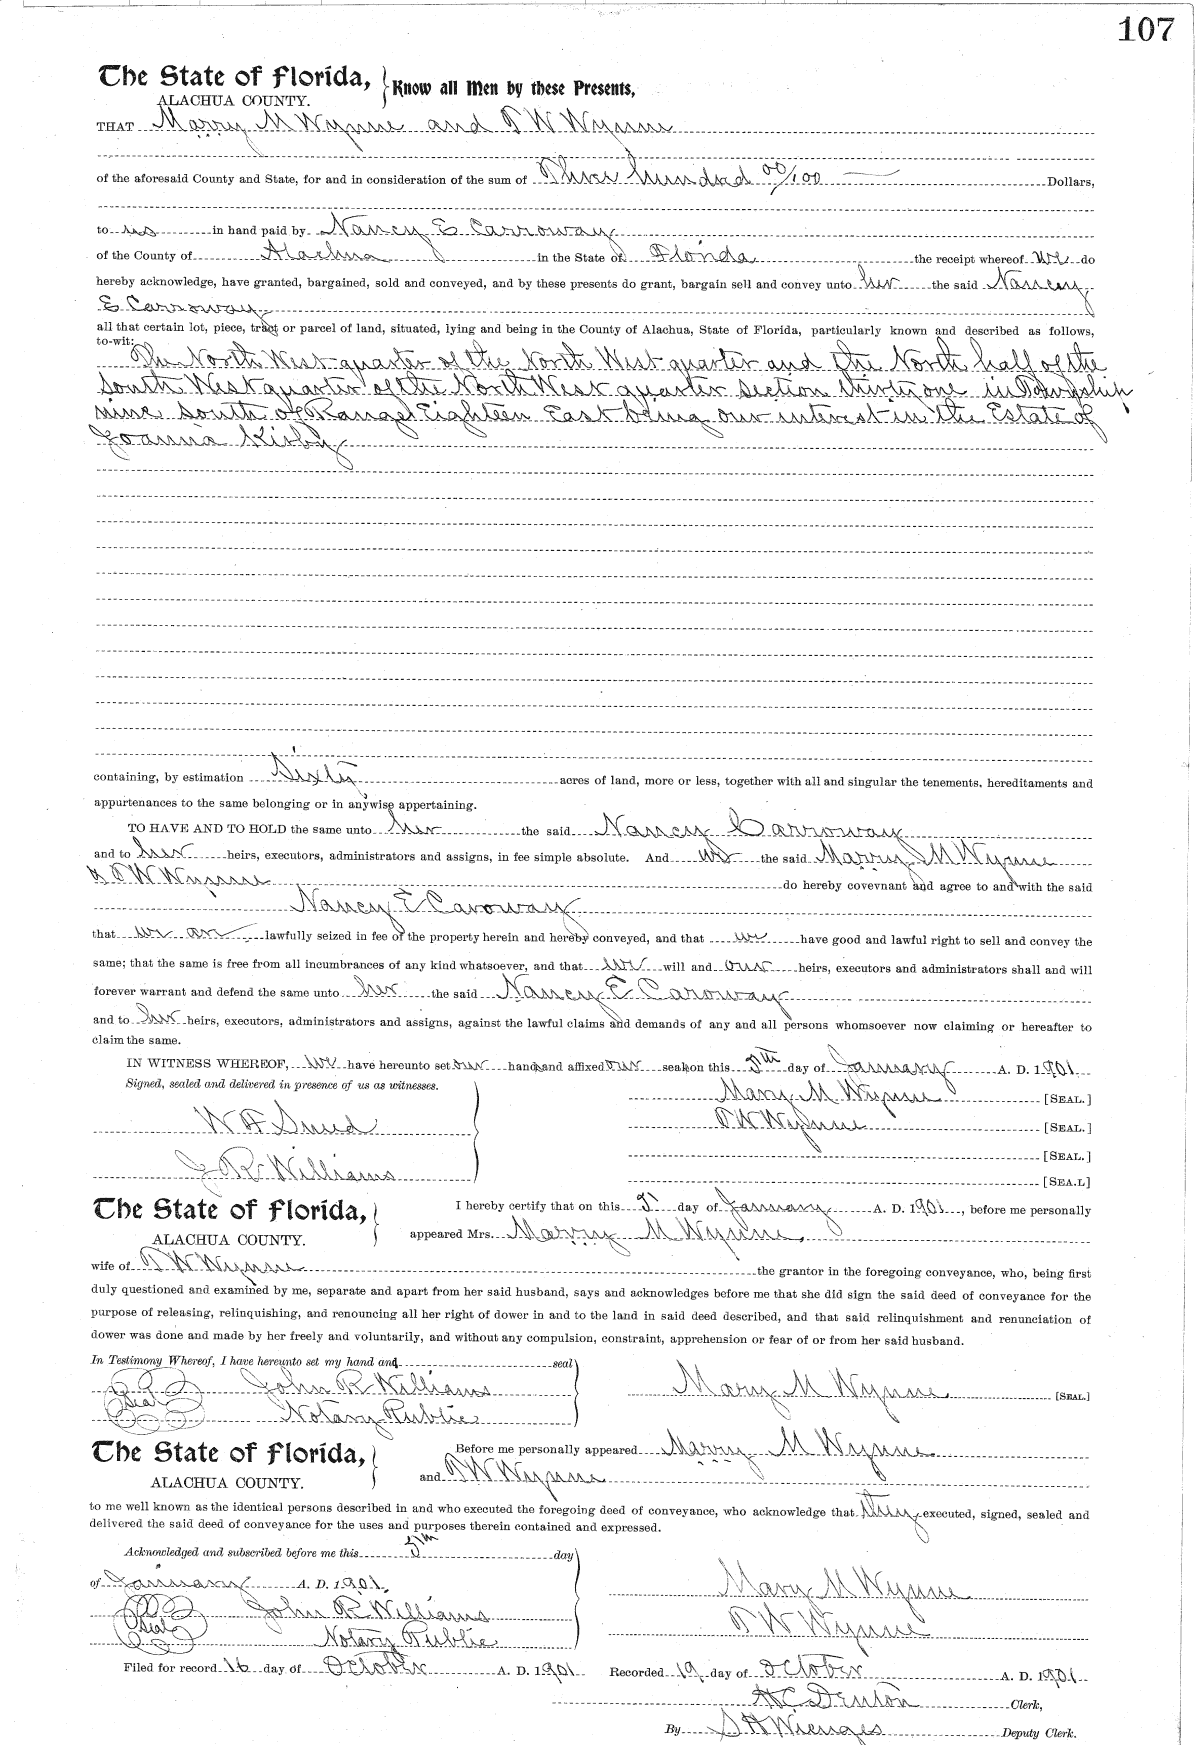 107
The State of Florida, Know all Men by these Presents,
ALACHUA COUNTY.
THAT Marry M Wynne and T W Wynne
of the aforesaid County and State, for and in consideration of the sum of Three hundred 00/100 Dollars,
to us in hand paid by Nancy E Carroway
of the County of Alachua in the State of Florida the receipt whereof we do
hereby acknowledge, have granted, bargained, sold and conveyed, and by these presents do grant, bargain sell and convey unto her the said Nancy
E Carroway
all that certain lot, piece, tract or parcel of land, situated, lying and being in the County of Alachua, State of Florida, particularly known and described as follows,
to-wit:
The North West quarter of the North West quarter and the North half of the
South West quarter of the North West quarter section thirty one in Township
nine South of Range Eighteen East being our interest in the Estate of
Joanna Kirby
containing, by estimation Sixty acres of land, more or less, together with all and singular the tenements, hereditaments and
appurtenances to the same belonging or in anywise appertaining.
TO HAVE AND TO HOLD the same unto her the said Nancy Carroway
and to her heirs, executors, administrators and assigns, in fee simple absolute. And we the said Marry M Wynne
& T W Wynne do hereby covevnant and agree to and with the said
Nancy E Caroway
that we are lawfully seized in fee of the property herein and hereby conveyed, and that we have good and lawful right to sell and convey the
same; that the same is free from all incumbrances of any kind whatsoever, and that we will and our heirs, executors and administrators shall and will
forever warrant and defend the same unto her the said Nancy E Caroway
and to her heirs, executors, administrators and assigns, against the lawful claims and demands of any and all persons whomsoever now claiming or hereafter to
claim the same.
IN WITNESS WHEREOF, we have hereunto set our hands and affixed our seals on this 5th day of January A. D. 1901
Signed, sealed and delivered in presence of us as witnesses. Mary M Wynne [SEAL.]
W F Sneed T W Wynne [SEAL.]
[SEAL.]
J R Williams [SEA.L]
The State of Florida, I hereby certify that on this 5 day of January A. D. 1901, before me personally
ALACHUA COUNTY. appeared Mrs. Marry M Wynne,
wife of T W Wynne the grantor in the foregoing conveyance, who, being first
duly questioned and examined by me, separate and apart from her said husband, says and acknowledges before me that she did sign the said deed of conveyance for the
purpose of releasing, relinquishing, and renouncing all her right of dower in and to the land in said deed described, and that said relinquishment and renunciation of
dower was done and made by her freely and voluntarily, and without any compulsion, constraint, apprehension or fear of or from her said husband.
In Testimony Whereof, I have hereunto set my hand and seal
Seal John R Williams Mary M Wynne [SEAL.]
Notary Public
The State of Florida, Before me personally appeared Marry M Wynne
ALACHUA COUNTY. and T W Wynne
to me well known as the identical persons described in and who executed the foregoing deed of conveyance, who acknowledge that they executed, signed, sealed and
delivered the said deed of conveyance for the uses and purposes therein contained and expressed.
Acknowledged and subscribed before me this 5th day
of January A. D. 1901. Mary M Wynne
Seal John R Williams T W Wynne
Notary Public
Filed for record 16 day of October A. D. 1901 Recorded 19 day of October A. D. 1901
H C Denton Clerk,
By S H Wienges Deputy Clerk.